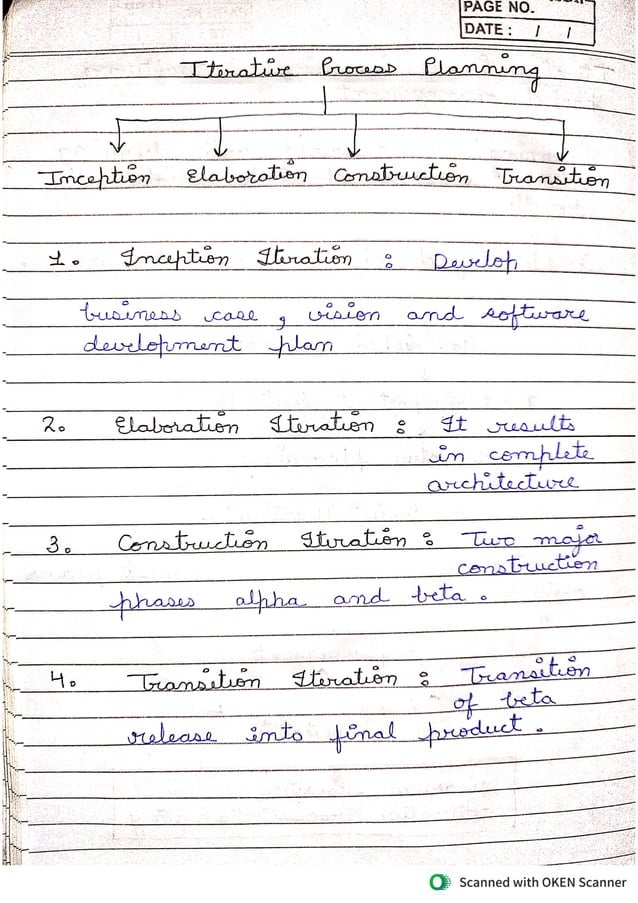 PAGE NO.
DATE : / /
Iterative Process Planning
Inception Elaboration Construction Transition
1. Inception Iteration : Develop
business case , vision and software
development plan
2. Elaboration Iteration : It results
in complete
architecture
3. Construction Iteration : Two major
construction
phases alpha and beta .
4. Transition Iteration : Transition
of beta
release into final product .
Scanned with OKEN Scanner